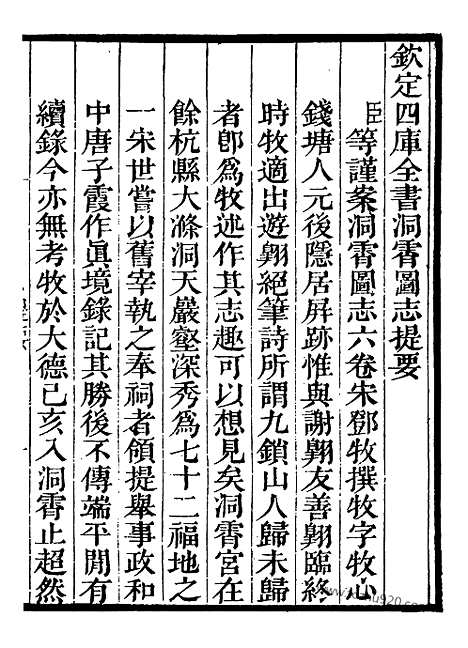 欽定四庫全書洞霄圖志提要
臣等謹案洞霄圖志六卷宋鄧牧撰牧字牧心
錢塘人元後隱居屏跡惟與謝翺友善翺臨終
時牧適出遊翺絕筆詩所謂九鎖山人歸未歸
者卽爲牧述作其志趣可以想見矣洞霄宮在
餘杭縣大滌洞天巖壑深秀爲七十二福地之
一宋世嘗以舊宰執之奉祠者領提舉事政和
中唐子霞作眞境錄記其勝後不傳端平閒有
續錄今亦無考牧於大德己亥入洞霄止超然